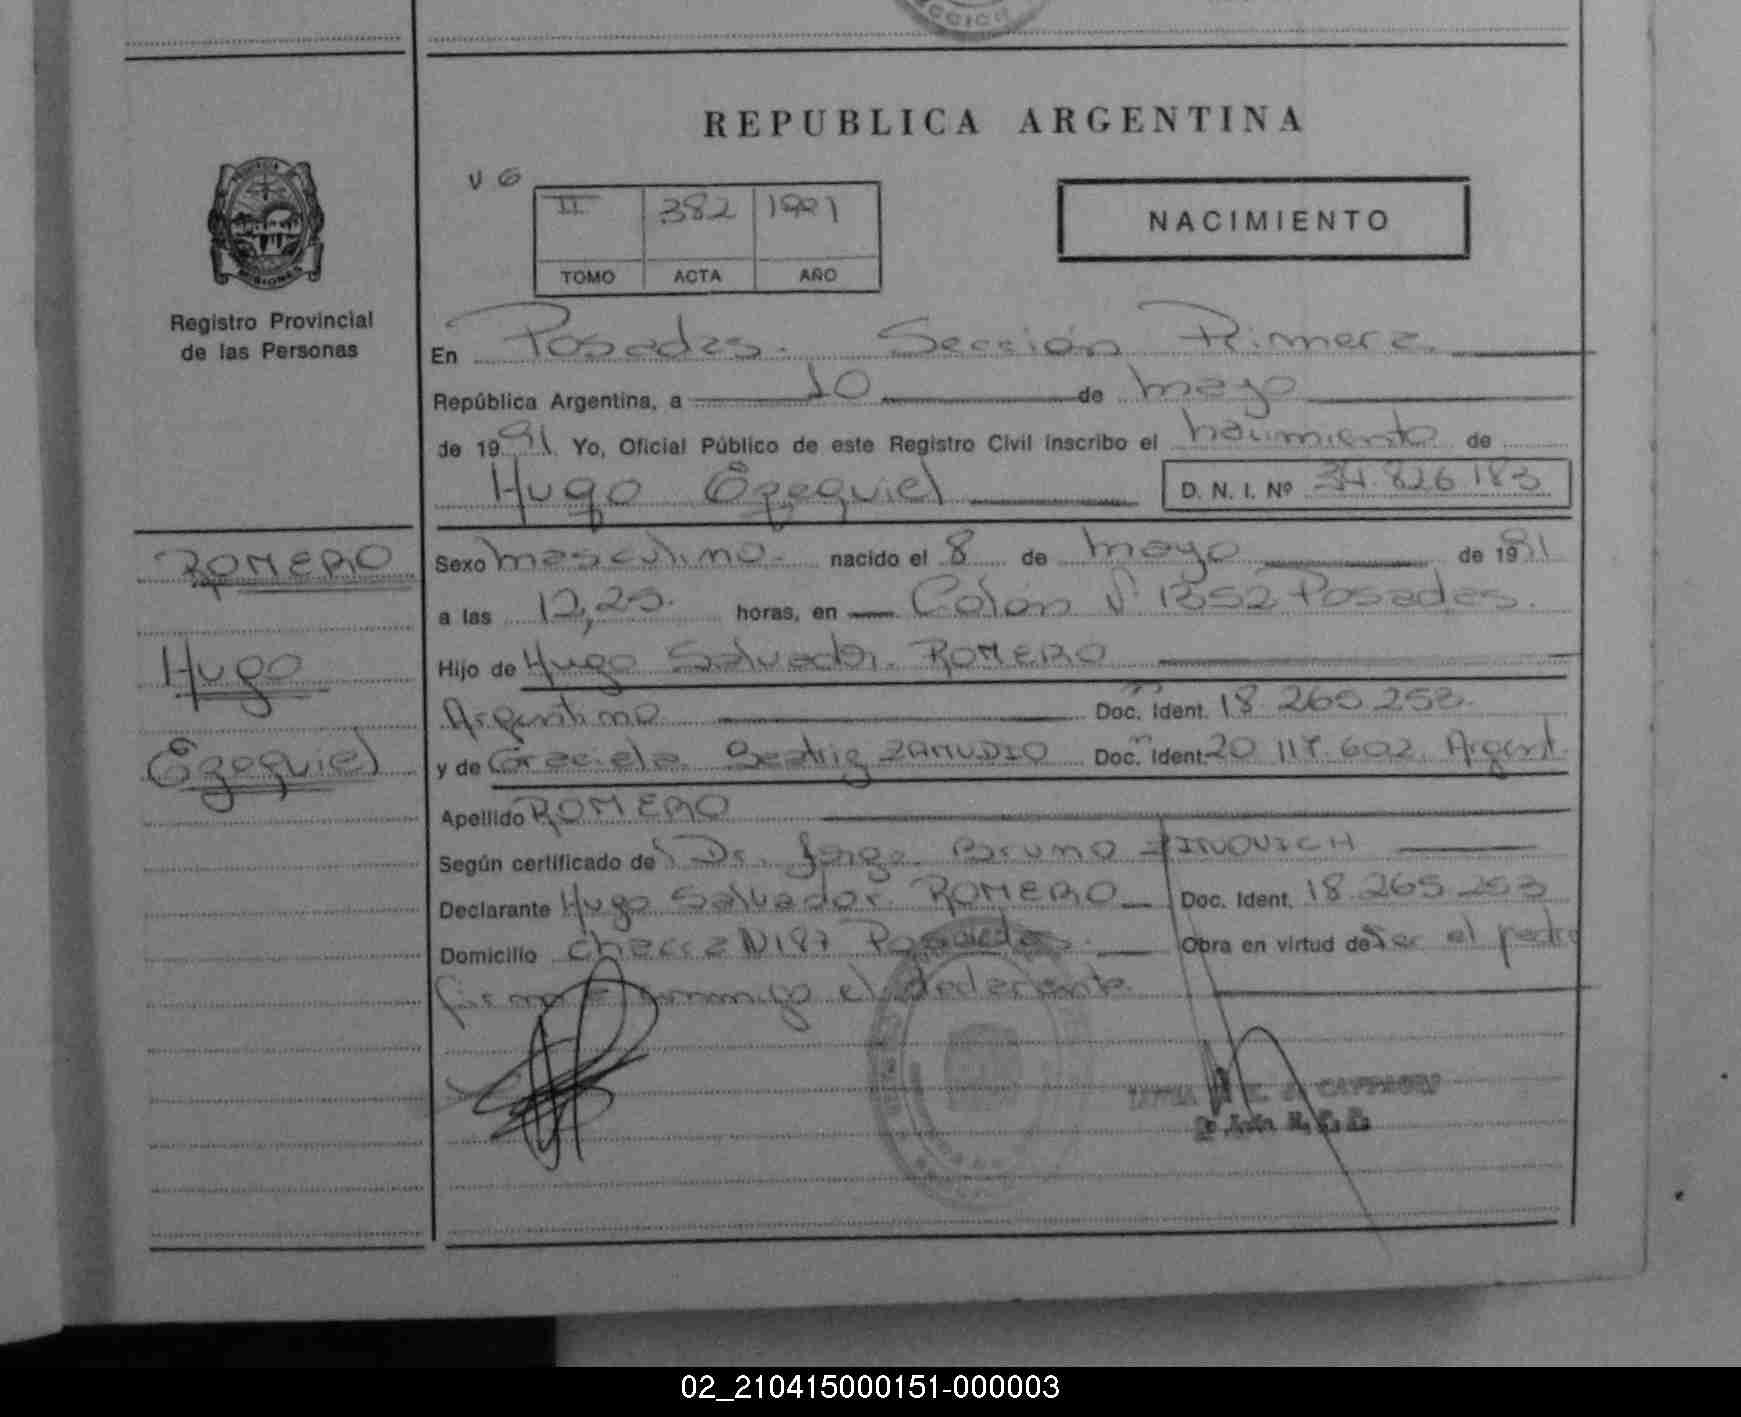 REPUBLICA ARGENTINA
V 6
II 382 1991
TOMO ACTA AÑO
NACIMIENTO
Registro Provincial
de las Personas
En Posadas. Sección Primera
República Argentina, a 10 de mayo
de 1991 Yo, Oficial Público de este Registro Civil inscribo el nacimiento de
Hugo Ezequiel D. N. I. Nº 34.826.183
ROMERO
Hugo
Ezequiel
Sexo masculino nacido el 8 de mayo de 1991
a las 12,25. horas, en Colón Nº 1352 Posadas.
Hijo de Hugo Salvador ROMERO
Argentino Doc. Ident. 18.265.253.
y de Graciela Beatriz ZAMUDIO Doc. Ident. 20.117.602. Argent.
Apellido ROMERO
Según certificado de Dr. Jorge Bruno ZINOVICH
Declarante Hugo Salvador ROMERO Doc. Ident. 18.265.253
Domicilio Chacra N 187 Posadas. Obra en virtud de Ser el padre
firma conmigo el declarante.
02_210415000151-000003